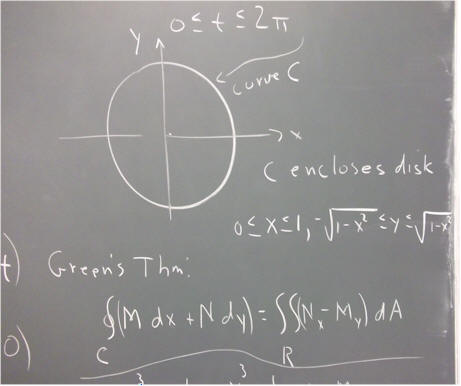 0 ≤ t ≤ 2π
y
curve C
x
C encloses disk
0 ≤ x ≤ 1, -√(1-x²) ≤ y ≤ √(1-x²
t) Green's Thm:
∮(M dx + N dy) = ∬(Nx - My) dA
C R
0)
3 3